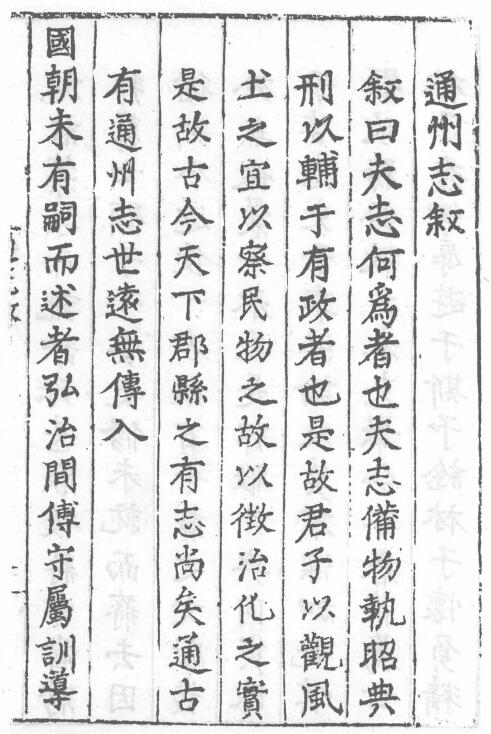 通州志敘
敘曰夫志何爲者也夫志備物執昭典
刑以輔于有政者也是故君子以觀風
土之宜以察民物之故以徴治化之實
是故古今天下郡縣之有志尚矣通古
有通州志世遠無傳入
國朝未有嗣而述者弘治間傅守屬訓導